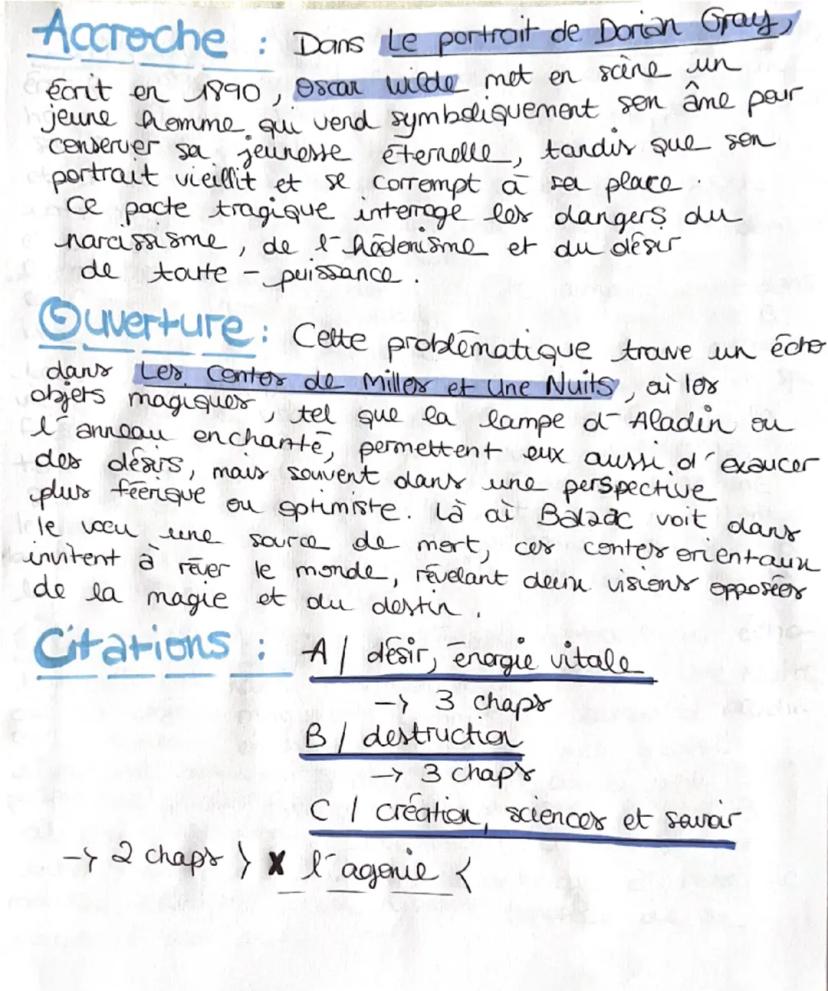 Accroche : Dans Le portrait de Dorian Gray,
écrit en 1890, Oscar Wilde met en scène un
jeune homme qui vend symboliquement son âme pour
conserver sa jeunesse éternelle, tandis que son
portrait vieillit et se corrompt à sa place.
Ce pacte tragique interroge les dangers du
narcissisme, de l'hôdenisme et du désir
de toute - puissance.
Ouverture : Cette problématique trouve un écho
dans Les Contes de Milles et Une Nuits, où les
objets magiques, tel que la lampe d'Aladin ou
l'anneau enchanté, permettent eux aussi d'exaucer
des désirs, mais souvent dans une perspective
plus féérique ou optimiste. Là où Balzac voit dans
le vœu une source de mort, ces contes orientaux
invitent à rêver le monde, révélant deux visions opposées
de la magie et du destin.
Citations : A / désir, énergie vitale
→ 3 chaps
B / destruction
→ 3 chaps
C / création, sciences et savoir
→ 2 chaps > x l'agonie <